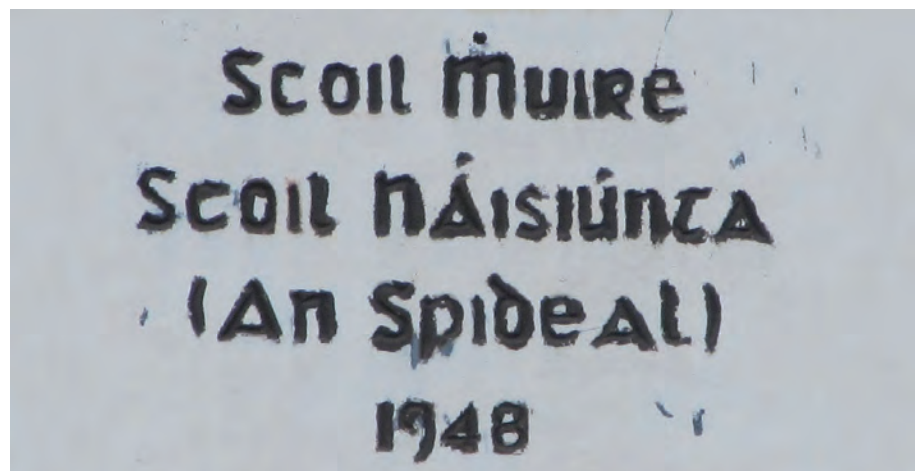 Scoil Ṁuire
Scoil Náisiúnta
(An Spideal)
1948